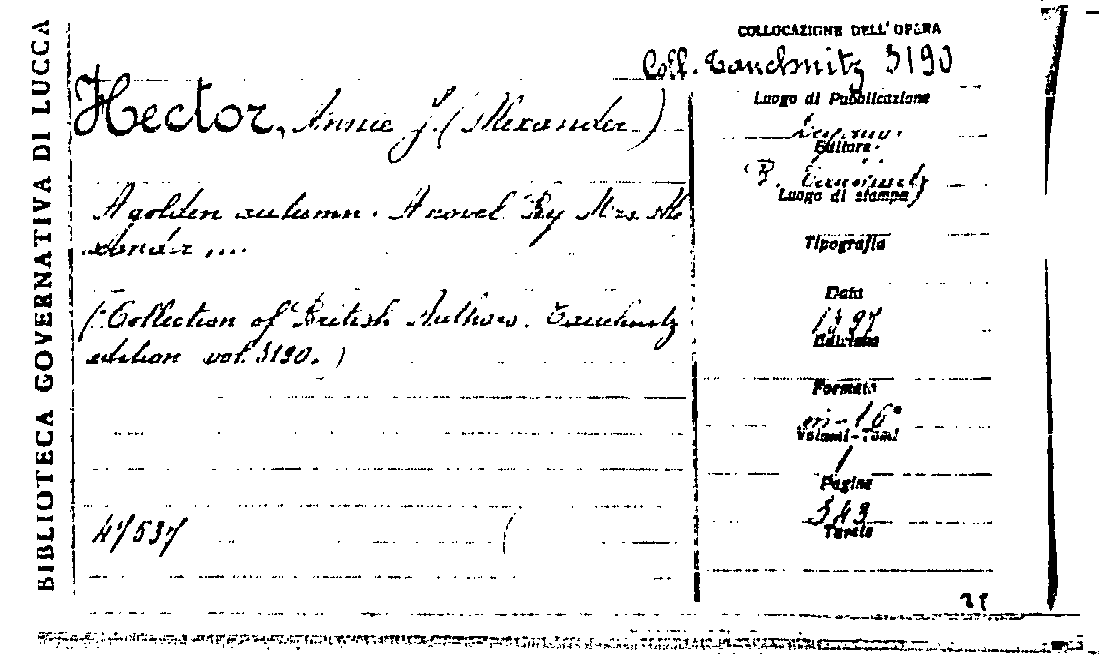 BIBLIOTECA GOVERNATIVA DI LUCCA
COLLOCAZIONE DELL'OPERA
Coll. Tauchnitz 3190
Hector, Annie F. (Alexander)
A golden autumn. A novel By Mrs. Ale
xander ...
(Collection of British Authors. Tauchnitz
edition vol. 3190.)
47537
Luogo di Pubblicazione
Editore
B. Tauchnitz
Luogo di stampa
Tipografia
Data
1897
Edizione
Formato
in-16°
Volumi-Tomi
1
Pagine
343
Tavole